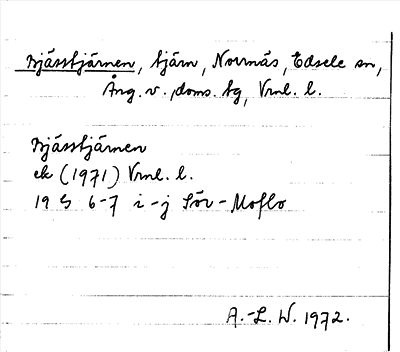 Bjässtjärnen, tjärn, Norrnäs, Edsele sn,
Ång. v. doms. tg, Vrnl. l.
Bjässtjärnen
ek (1971) Vrnl. l.
19 G 6-7 i-j Sör-Moflo
A.-L. W. 1972.